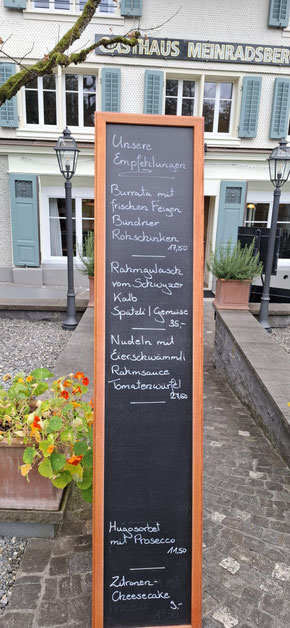 GASTHAUS MEINRADSBER
Unsere
Empfehlungen
Burrata mit
frischen Feigen
Bündner
Rohschinken
17,50
Rahmgulasch
vom Schwyzer
Kalb
Spätzli / Gemüse
35,-
Nudeln mit
Eierschwämmli
Rahmsauce
Tomatenwürfel
27,50
Hugosorbet
mit Prosecco
11,50
Zitronen-
Cheesecake
9,-